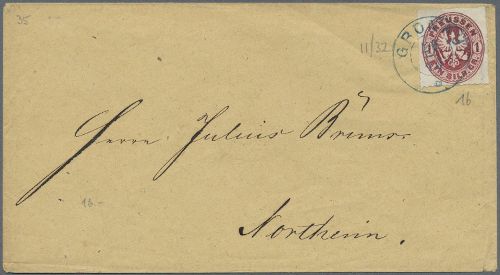 35
11/32
GRO
PREUSSEN
1 1
EIN SILB.GR.
16
Herrn Julius
16.-
Northeim.